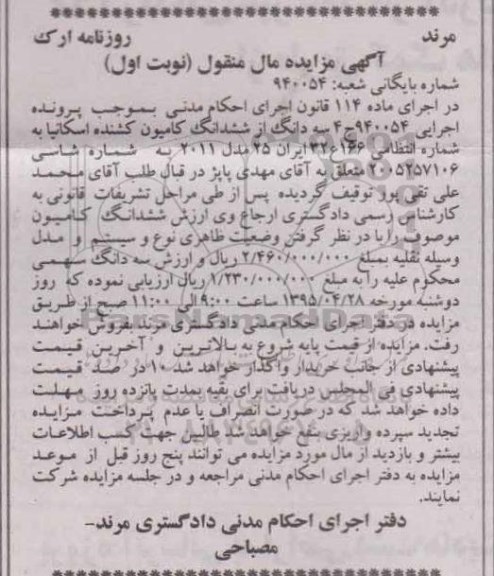 مرند روزنامه ارک
آگهی مزایده مال منقول (نوبت اول)
شماره بایگانی شعبه: ۹۴۰۰۵۴
در اجرای ماده ۱۱۴ قانون اجرای احکام مدنی بموجب پرونده
اجرایی ۹۴۰۰۵۴ج۴ سه دانگ از ششدانگ کامیون کشنده اسکانیا به
شماره انتظامی ۱۶۶ع۳۲ ایران ۲۵ مدل ۲۰۱۱ به شماره شاسی
۲۰۰۵۲۵۷۱۰۶ متعلق به آقای مهدی پاپژ در قبال طلب آقای محمد
علی تقی پور توقیف گردیده پس از طی مراحل تشریفات قانونی به
کارشناس رسمی دادگستری ارجاع وی ارزش ششدانگ کامیون
موصوف را با در نظر گرفتن وضعیت ظاهری نوع و سیستم و مدل
وسیله نقلیه بمبلغ ۲/۴۶۰/۰۰۰/۰۰۰ ریال و ارزش سه دانگ سهمی
محکوم علیه را به مبلغ ۱/۲۳۰/۰۰۰/۰۰۰ ریال ارزیابی نموده که روز
دوشنبه مورخه ۱۳۹۵/۰۴/۲۸ ساعت ۹:۰۰ الی ۱۱:۰۰ صبح از طریق
مزایده در دفتر اجرای احکام مدنی دادگستری مرند بفروش خواهند
رفت. مزایده از قیمت پایه شروع به بالاترین و آخرین قیمت
پیشنهادی از جانب خریدار واگذار خواهد شد ۱۰ در صد قیمت
پیشنهادی فی المجلس دریافت برای بقیه بمدت پانزده روز مهلت
داده خواهد شد که در صورت انصراف یا عدم پرداخت مزایده
تجدید سپرده واریزی بنفع خواهد شد طالبین جهت کسب اطلاعات
بیشتر و بازدید از مال مورد مزایده می توانند پنج روز قبل از موعد
مزایده به دفتر اجرای احکام مدنی مراجعه و در جلسه مزایده شرکت
نمایند.
دفتر اجرای احکام مدنی دادگستری مرند-
مصباحی
ParsNamadData